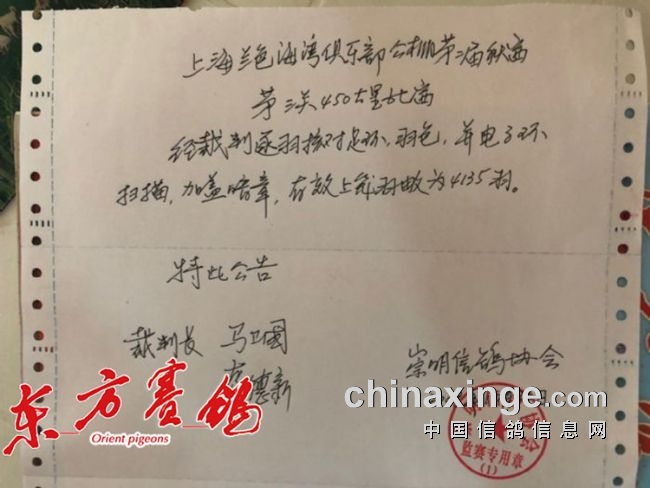 上海兰色海湾俱乐部公棚第二届秋赛
第三关450公里比赛
经裁判逐羽核对足环,羽色,并电子环
扫描,加盖暗章,有效上笼羽数为4135羽。
特此公告
裁判长 马卫国
德新
崇明信鸽协会
东方赛鸽
Orient pigeons
chinaxinge.com
中国信鸽信息网
监赛专用章
(1)